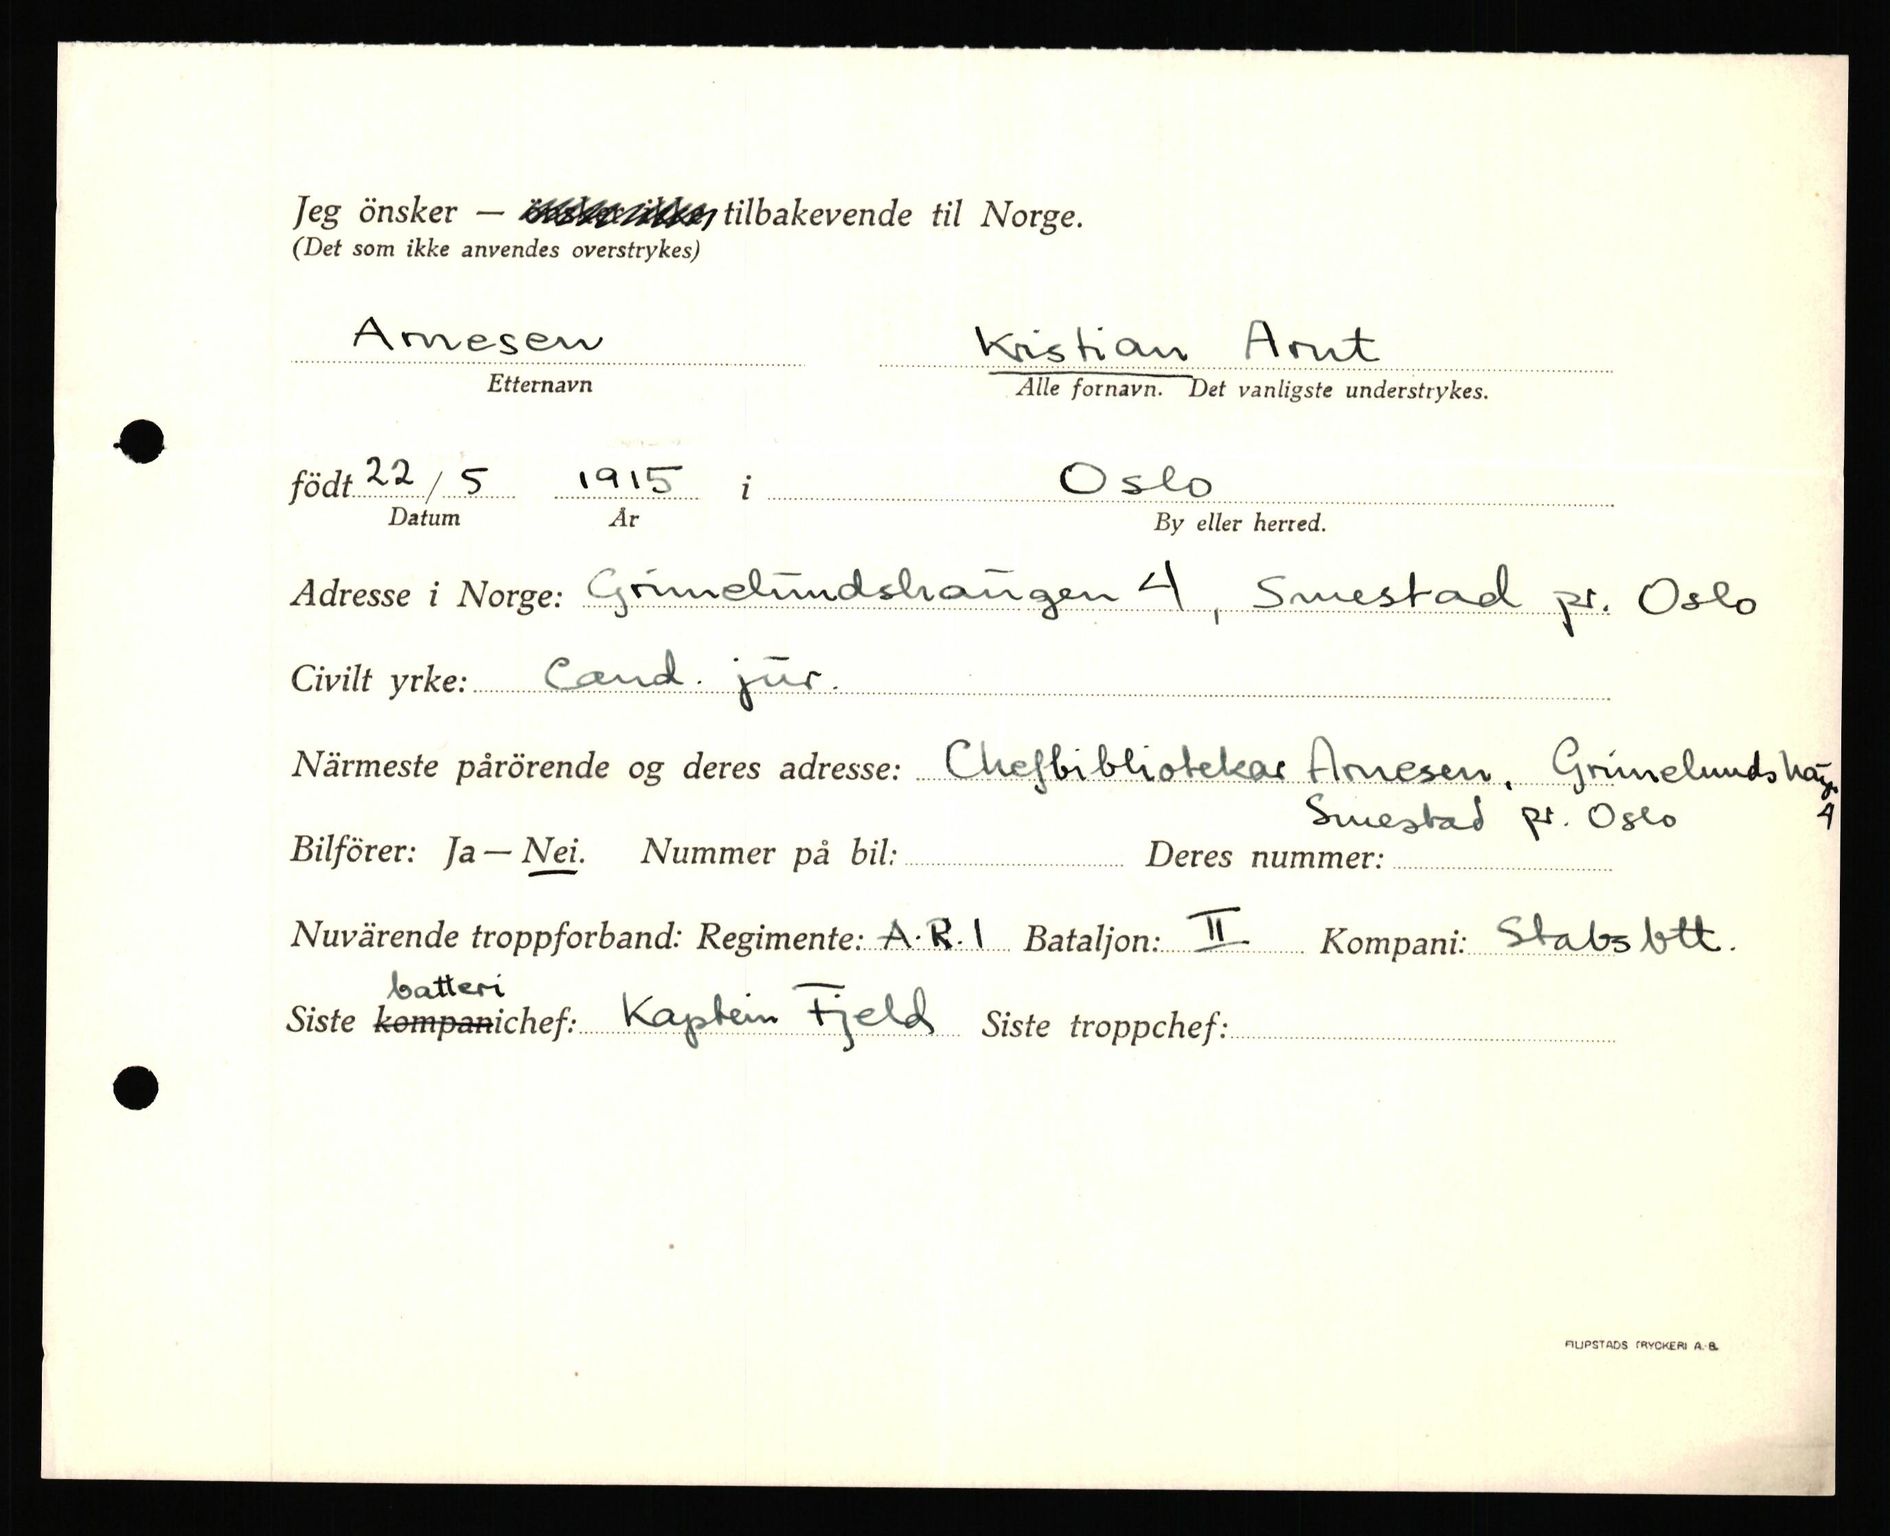 Jeg önsker — önsker ikke, tilbakevende til Norge.
(Det som ikke anvendes overstrykes)
Arnesen Kristian Arnt
Etternavn Alle fornavn. Det vanligste understrykes.
födt 22 / 5 1915 i Oslo
Datum År By eller herred.
Adresse i Norge: Grimelundshaugen 4, Smestad pr. Oslo
Civilt yrke: Cand. jur.
Närmeste pårörende og deres adresse: Chefbibliotekar Arnesen, Grimelundshaug 4
Smestad pr. Oslo
Bilförer: Ja — Nei. Nummer på bil: Deres nummer:
Nuvärende troppforband: Regimente: A.R.1 Bataljon: II Kompani: Stabsbtt.
batteri
Siste kompanichef: Kaptein Fjeld Siste troppchef:
FILIPSTADS TRYCKERI A.-B.